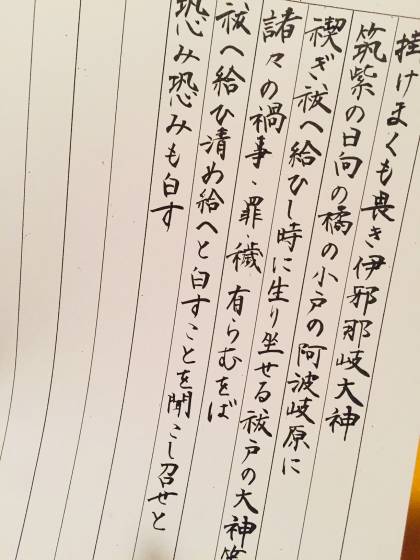 掛けまくも畏き伊邪那岐大神
筑紫の日向の橘の小戸の阿波岐原に
禊ぎ祓へ給ひし時に生り坐せる祓戸の大神等
諸々の禍事・罪・穢有らむをば
祓へ給ひ清め給へと白すことを聞こし召せと
恐み恐みも白す